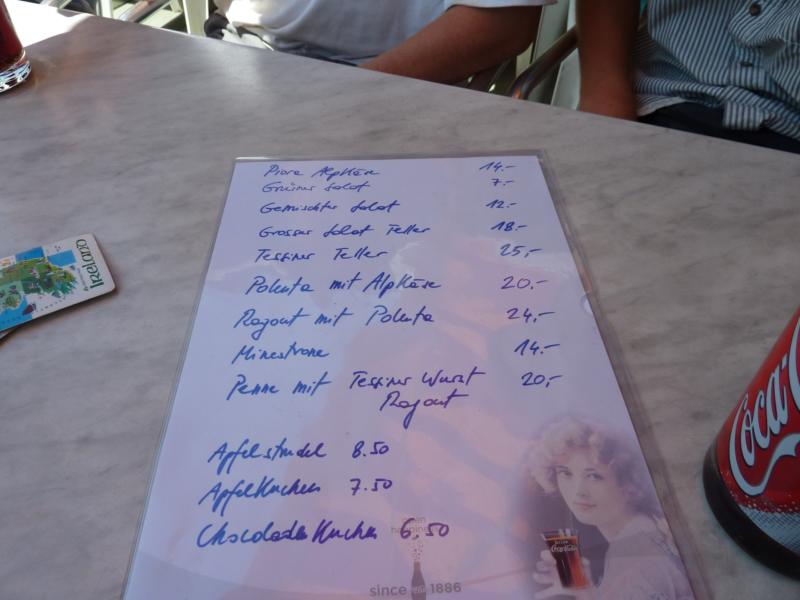 Piora Alpkäse 14.-
Grüner Salat 7.-
Gemischter Salat 12.-
Grosser Salat Teller 18.-
Tessiner Teller 25.-
Polenta mit Alpkäse 20.-
Ragout mit Polenta 24.-
Minestrone 14.-
Penne mit Tessiner Wurst 20.-
Ragout
Apfelstrudel 8.50
Apfelkuchen 7.50
Chocolade Kuchen 6.50
since 1886
Coca-C
Ireland